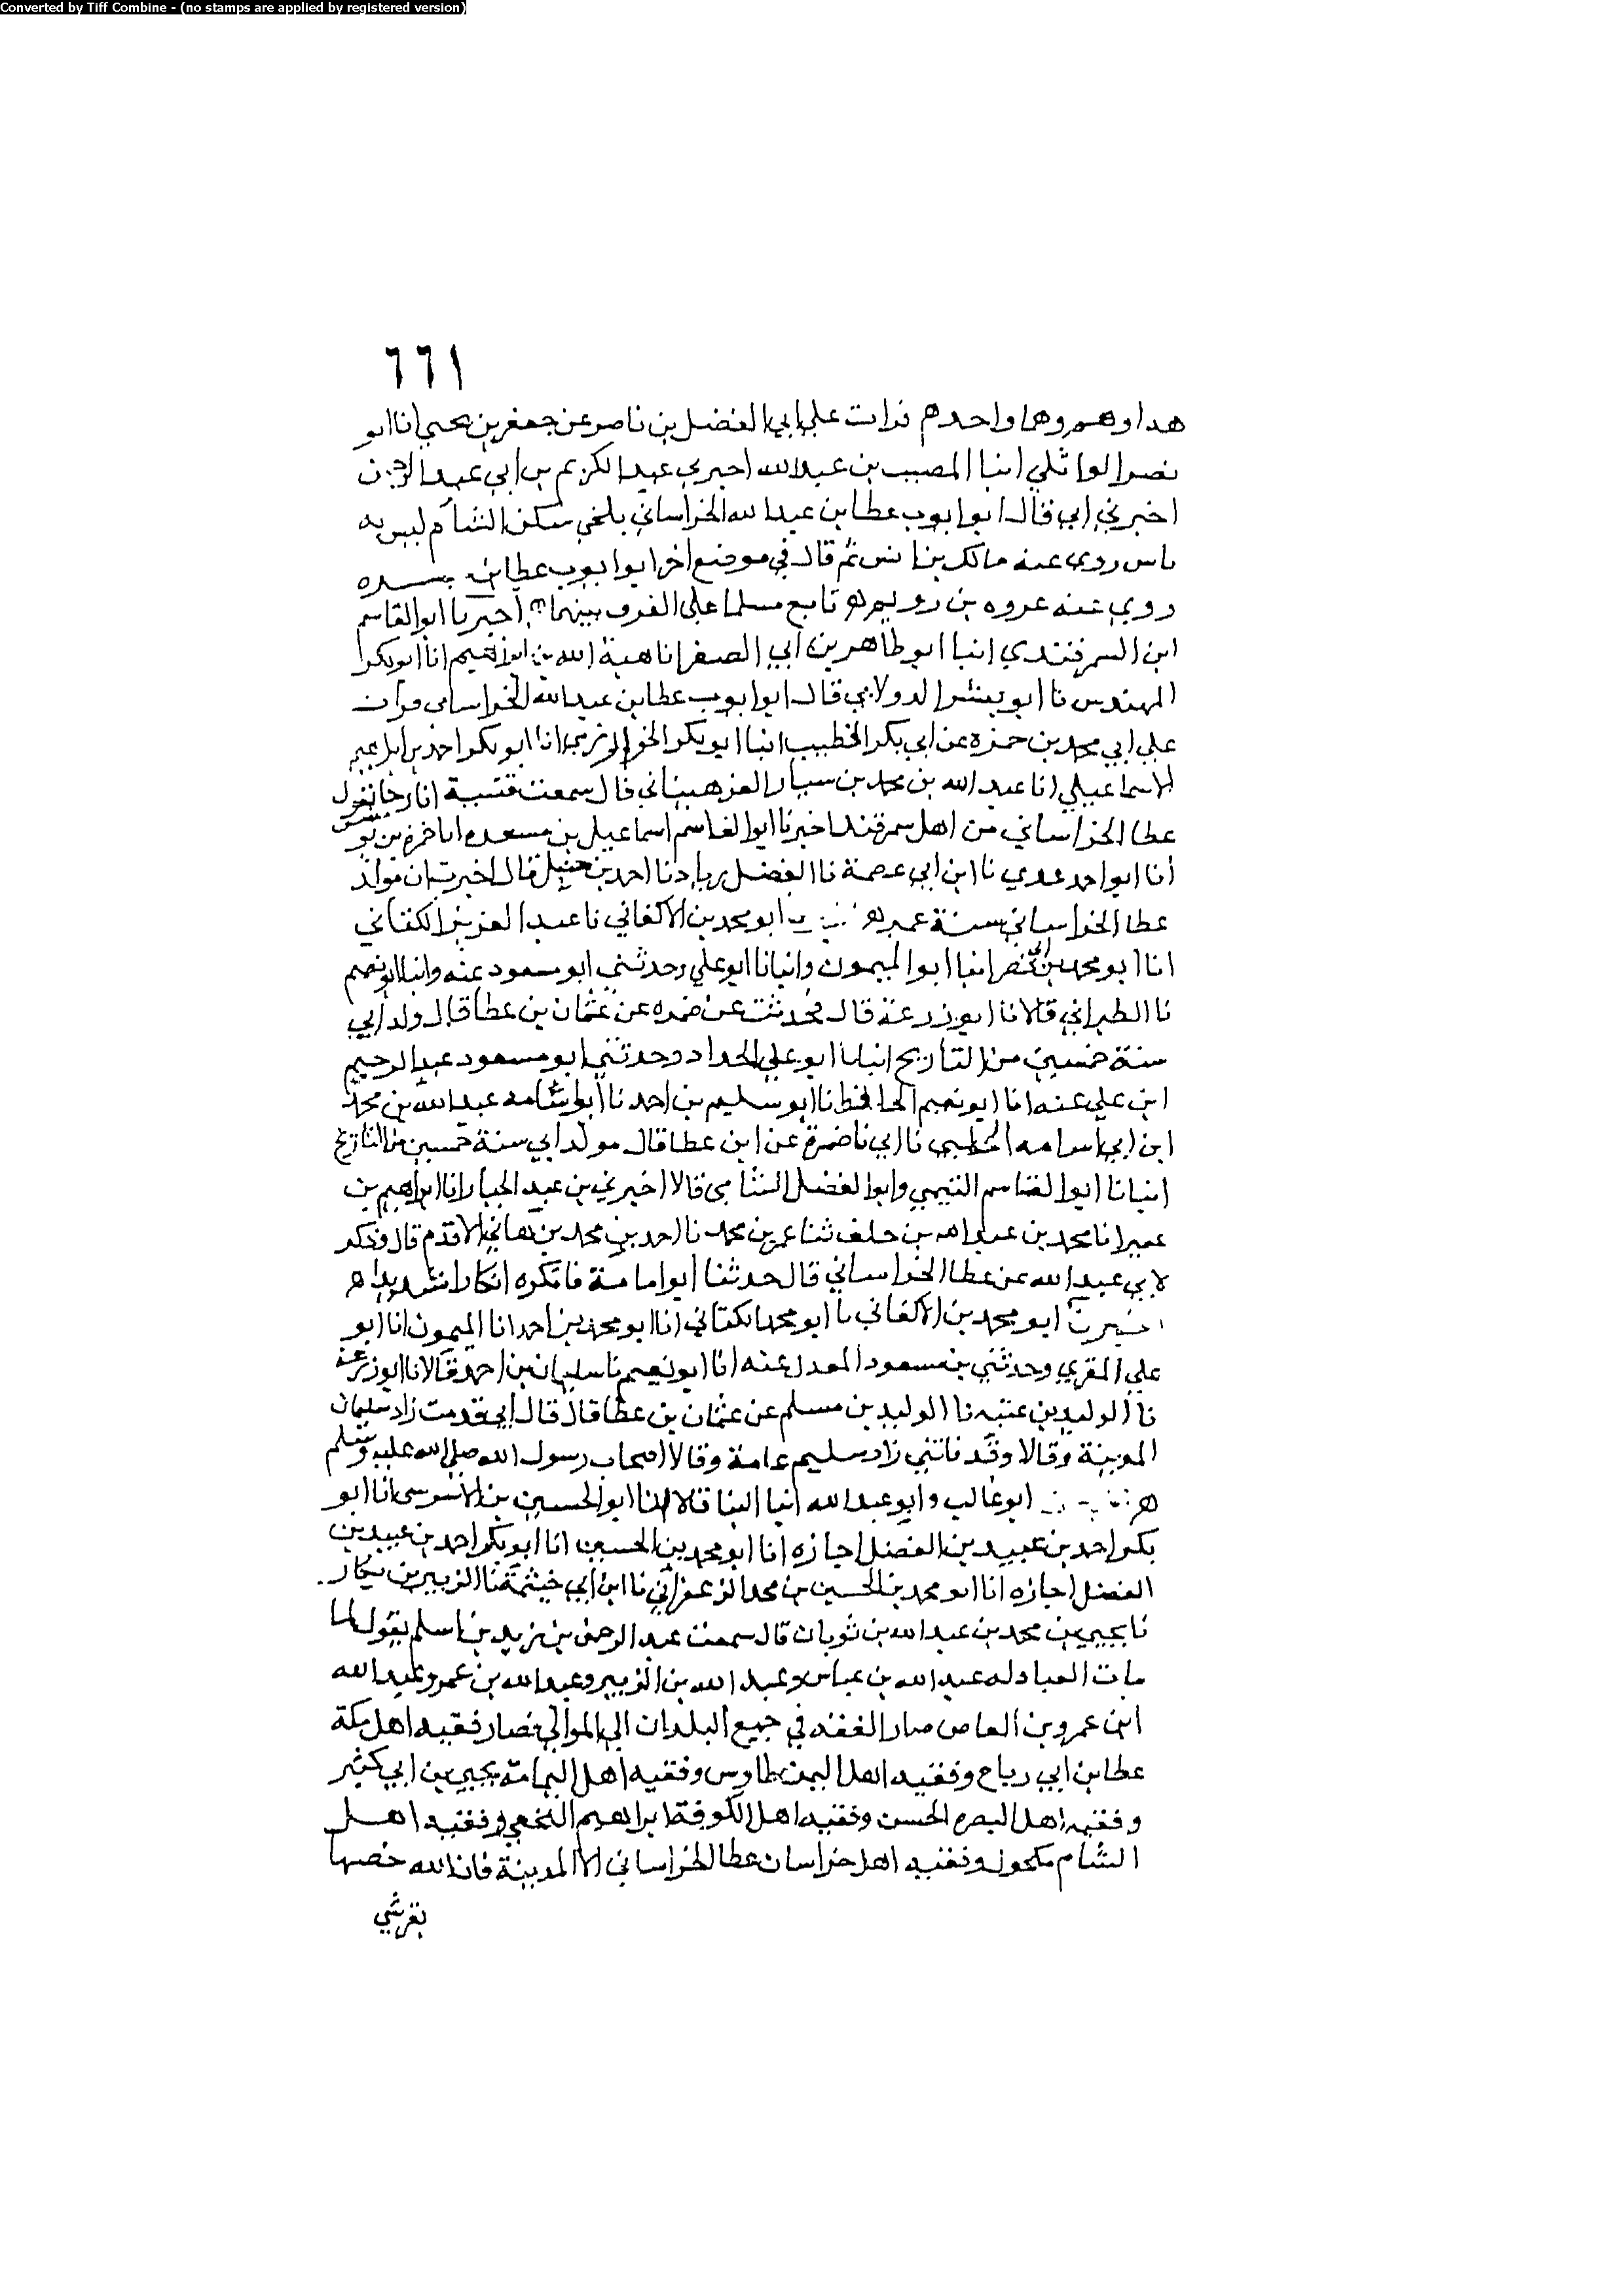 Converted by Tiff Combine - (no stamps are applied by registered version)
٦٦١
هدا وهم وهما واحدهم قرات علي ابي الفضل بن ناصر عن جعفر بن يحيي انا ابو
نصر الوائلي انبا الخصيب بن عبد الله اخبرني عبد الكريم بن ابي عبد الرحمن
اخبرني ابي قال ابو ايوب عطا بن عبد الله الخراساني بلخي سكن الشام ليس به
باس روي عنه مالك بن انس ثم قال في موضع اخر ابو ايوب عطا بن ميسره
روي عنه عروه بن رويم تابع مسلما علي الفرق بينهما اخبرنا ابو القاسم
ابن السمرقندي انبا ابو طاهر بن ابي الصقر انا هبة الله بن ابراهيم انا ابو بكر
المهندس نا ابو بشر الدولابي قال ابو ايوب عطا بن عبد الله الخراساني قرات
علي ابي محمد بن حمزه عن ابي بكر الخطيب انبا ابو بكر الخوارزمي انا ابو بكر احمد بن ابراهيم
الاسماعيلي انا عبد الله بن محمد بن سيار الفرهيناني قال سمعت قتيبة يقول
عطا الخراساني من اهل سمرقند اخبرنا ابو القاسم اسماعيل بن مسعده انا حمزة بن يوسف
انا ابو احمد عدي نا ابن ابي عصمة نا الفضل بن زياد نا احمد بن حنبل قال اخبرت ان مولد
عطا الخراساني سنة ابو محمد بن الاكفاني نا عبد العزيز الكتاني
انا ابو محمد بن ابي نصر انبا ابو الميمون وانبانا ابو علي وحدثني ابو مسعود عنه وانبا ابو نعيم
نا الطبراني قالا نا ابو زرعة قال فحدثت عن ضمره عن عثمان بن عطا قال ولد ابي
سنة خمسين من التاريخ انبانا ابو علي الحداد وحدثني ابو مسعود عبد الرحيم
ابن علي عنه انا ابو نعيم الحافظ نا ابو سليم بن احمد نا ابو اسامه عبد الله بن محمد
ابن ابي اسامه الحلبي نا ابي نا ضمرة عن ابن عطا قال مولد ابي سنة خمسين من التاريخ
انبانا ابو القاسم التيمي وابو الفضل السلامي قالا اخبرني بن عبد الجبار انا ابراهيم بن
عمر انا محمد بن عبد الله بن خلف ثنا عمر بن محمد نا احمد بن محمد بن هاني الاقدم قال وذكر
لابي عبد الله عن عطا الخراساني قال حدثنا ابو امامة فانكره انكارا شديدا
اخبرنا ابو محمد بن الاكفاني نا ابو محمد الكتاني انا ابو محمد بن احمد انا الميمون انا ابو
علي المقري وحدثني بن مسعود المعدل عنه انا ابو نعيم نا سليمان بن احمد قالا نا ابو زرعة
نا الوليد بن عتبه نا الوليد بن مسلم عن عثمان بن عطا قال قال ابي قدمت زاد سليمان
المدينة وقالا وقد فاتني زاد سليم عامة وقالا اصحاب رسول الله صلي الله عليه وسلم
ابو غالب وابو عبد الله انبا البنا قالا انا ابو الحسين بن الابنوسي انا ابو
بكر احمد بن عبيد بن الفضل اجازه انا ابو محمد بن الحسين انا ابو بكر احمد بن عبيد بن
الفضل اجازه انا ابو محمد بن الحسين بن محمد الزعفراني نا ابن ابي خيثمة نا الزبير بن بكار
نا يحيي بن محمد بن عبد الله بن ثوبان قال سمعت عبد الرحمن بن زيد بن اسلم يقول لما
مات العبادله عبد الله بن عباس وعبد الله بن الزبير وعبد الله بن عمر وعبد الله
ابن عمرو بن العاص صار الفقه في جميع البلدان الي الموالي فصار فقيه اهل مكة
عطا بن ابي رباح وفقيه اهل اليمن طاوس وفقيه اهل اليمامة يحيي بن ابي كثير
وفقيه اهل البصره الحسن وفقيه اهل الكوفة ابراهيم النخعي وفقيه اهل
الشام مكحول وفقيه اهل خراسان عطا الخراساني الا المدينة فان الله خصها
بقرشي